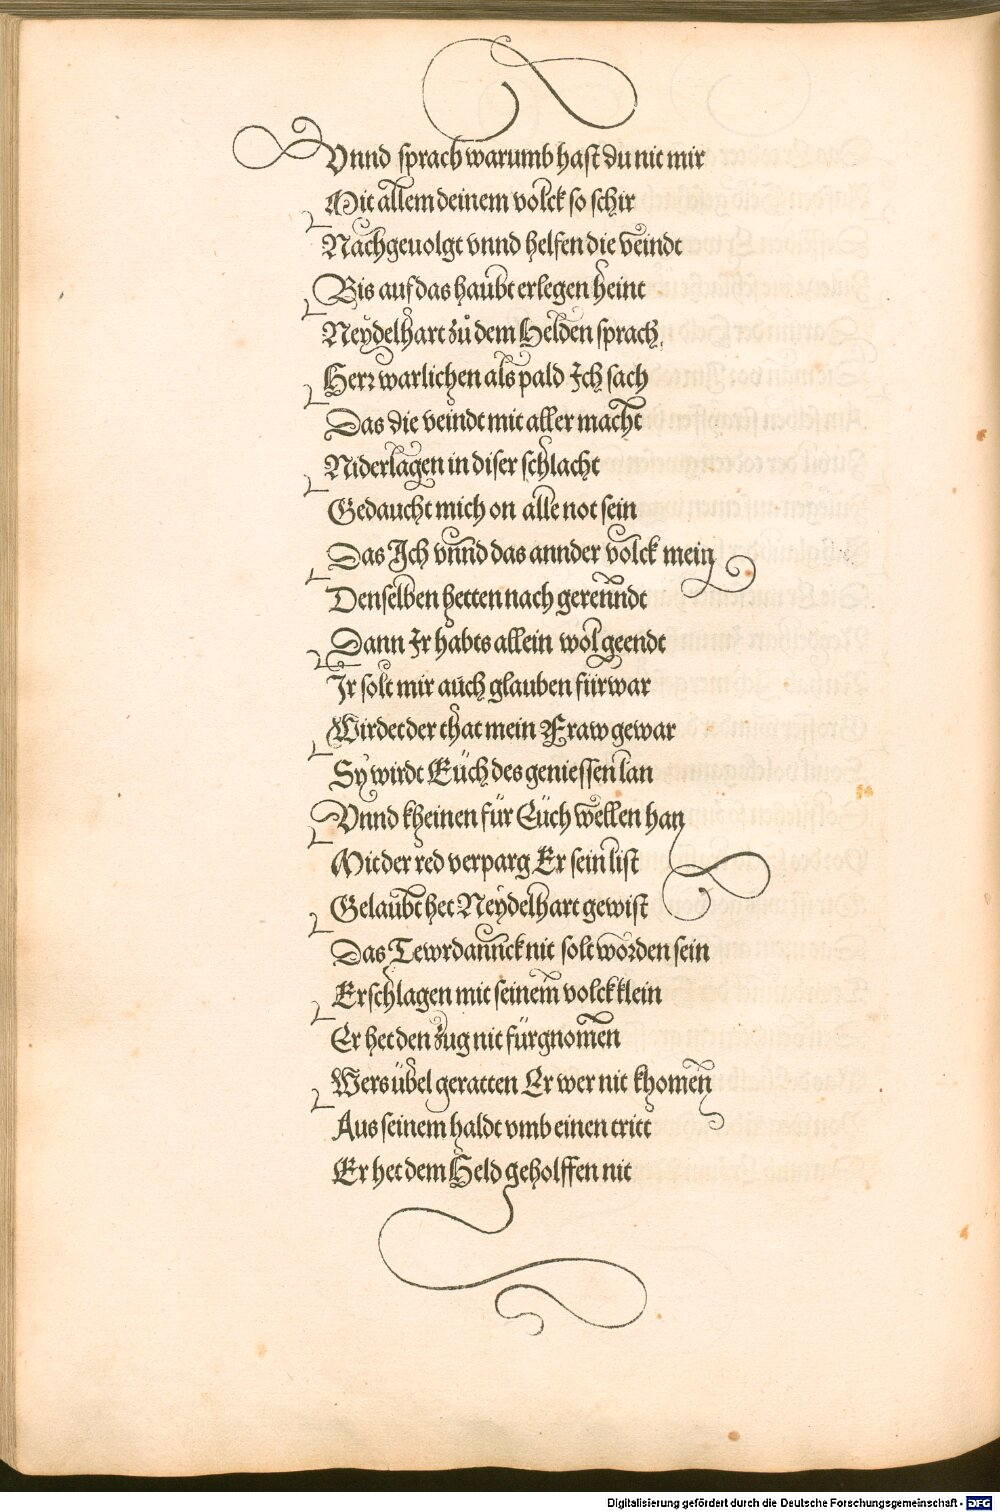 Vnnd sprach warumb hast du nit mir
Mit allem deinem volck so schir
Nachgeuolgt vnnd helfen die veindt
Bis auf das haubt erlegen heint
Neydelhart zů dem Helden sprach
Herr warlichen als pald Ich sach
Das die veindt mit aller macht
Niderlagen in diser schlacht
Gedaucht mich on alle not sein
Das Ich vnnd das annder volck mein
Denselben hetten nach gerenndt
Dann Ir habts allein wol geendt
Ir solt mir auch glauben fürwar
Wirdet der that mein Fraw gewar
Sy wirdt Euch des geniessen lan
Vnnd kheinen für Euch wellen han
Mit der red verparg Er sein list
Gelaubt het Neydelhart gewist
Das Tewrdannck nit solt worden sein
Erschlagen mit seinem volck klein
Er het den zug nit fürgnomen
Wers übel geratten Er wer nit khomen
Aus seinem haldt vmb einen tritt
Er het dem Held geholffen nit
Digitalisierung gefördert durch die Deutsche Forschungsgemeinschaft - DFG